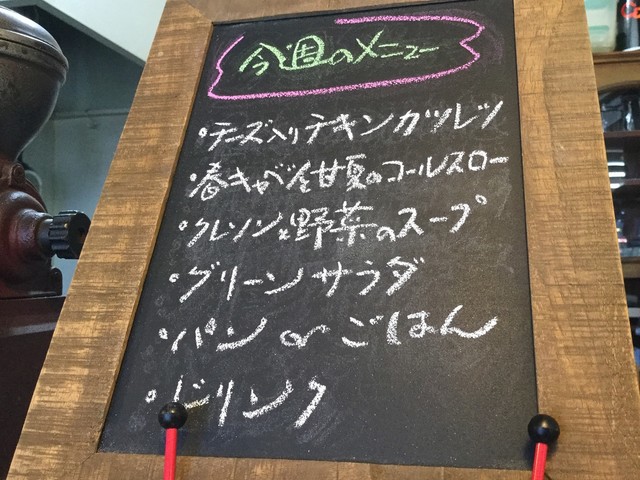 今週のメニュー
・チーズ入りチキンカツレツ
・春キャベと甘夏のコールスロー
・クレソンと野菜のスープ
・グリーンサラダ
・パン or ごはん
・ドリンク